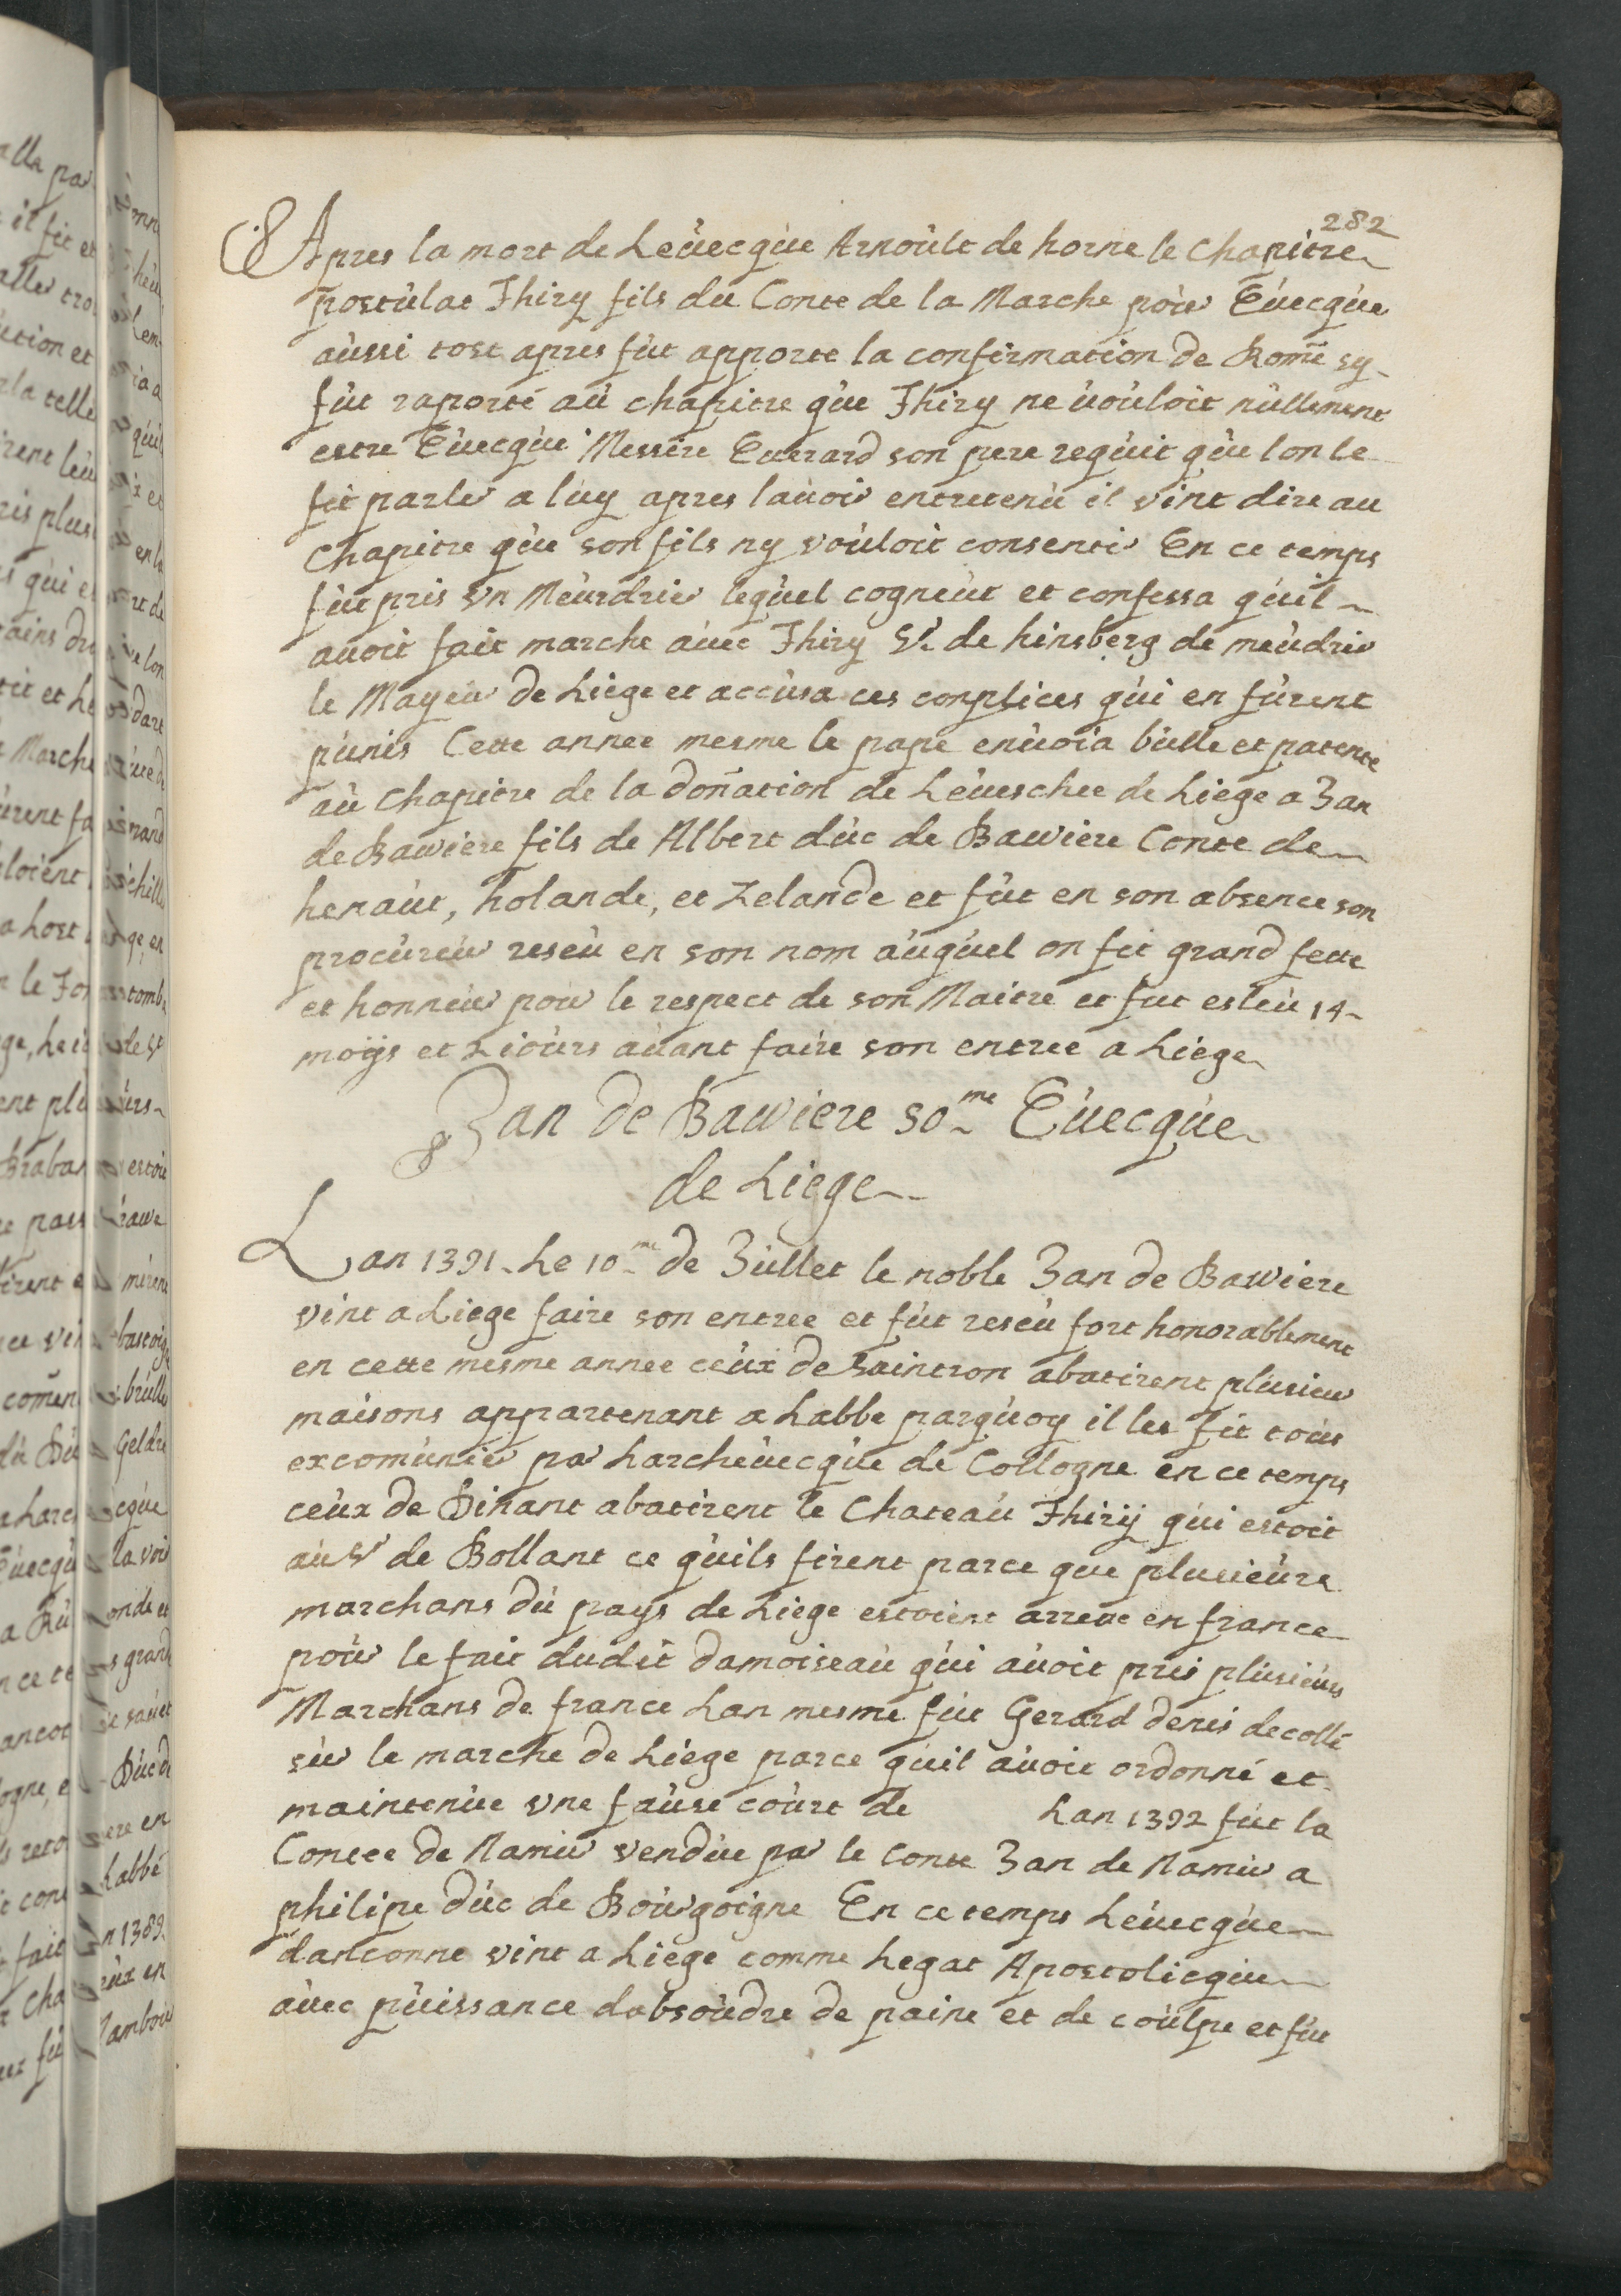 282
Apres la mort de Leùecqùe Arnoùlt de horne le Chapitre
postùlat Thiry fils du Conte de la Marche poùr Eùecqùe
aùssi tost apres fùt apporte la confirmation de Rome sy
fùt raporté aù chapitre qùe Thiry ne ùoùloit nùllement
estre Eùecqùe Messire Euerard son pere reqùit qùe lon le
fit parler a lùy apres lauoir entretenù il vint dire au
Chapitre qùe son fils ny voùloit consentir En ce temps
fùt pris vn Meùrdrier leqùel cogneùt et confessa qùil
auoit fait marche aùec Thiry Sr de hinsberg de meùdrir
le Mayeùr de Liege et accùsa ces complices qùi en fùrent
pùnis Cette annee mesme le pape enùoia bùlle et patente
aù Chapitre de la donation de Leùeschee de Liege a Jan
de Bawiere fils de Albert dùc de Bawiere Conte de
henaùt, holande, et Zelande et fùt en son absence son
procùreùr reseù en son nom aùqùel on fit grand fette
et honneùr pour le respect de son Maitre et fut esleù 14
moÿs et 2 ioùrs aùant faire son entree a Liege
Jan de Bawiere 50me Eùecqùe
de Liege
Lan 1391 Le 10me de Jùllet le noble Jan de Bawiere
vint a Liege faire son entree et fùt reseù fort honorablement
en cette mesme annee ceùx de Saintron abatirent plusieur
maisons appartenant a Labbe parqùoy il les fit toùs
excomùnier par Larcheùecqùe de Collogne en ce temps
ceùx de Dinant abatirent le Chateaù Thirÿ qùi estoit
aù Sr de Bollant ce qùils firent parce que plusieùrs
marchans dù pays de Liege estoient arrete en france
poùr le fait dudit damoiseaù qùi aùoit pris plùsieùrs
Marchans de france Lan mesme fùt Gerard denis decollé
sùr le marche de Liege parce qùil aùoit ordonné et
maintenùe vne faùse coùrt de Lan 1392 fùt la
Contee de Namùr vendùe par le Conte Jan de Namùr a
philipe dùc de Boùrgoigne En ce temps Leùecqùe
danconne vint a Liege comme Legat Apostolicqùe
aùec pùissance dabsoùdre de paine et de coùlpe et fùt